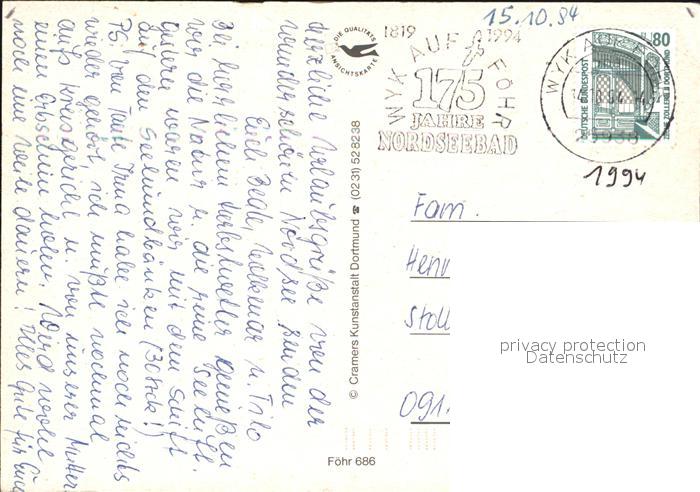 15.10.94
1819 1994
WYK AUF FÖHR
175
JAHRE
NORDSEEBAD
WYK AUF FÖHR
80
DEUTSCHE BUNDESPOST
ZECHE ZOLLERN II DORTMUND
1994
DIE QUALITÄTS
ANSICHTSKARTE
Herzliche Urlaubsgrüße von der
wunderschönen Nordsee senden
Euch Beate, u. Tilo
Bei herrlichem Herbstwetter genießen
wir die Natur u. die reine Seeluft.
waren wir mit dem Schiff
zu den Seehundbänken (30 Stck!)
PS: Von Tante Irma habe ich noch nichts
wieder gehört, ich mußte nochmal
aufs Kreisgericht u. von unserer Mutter
einen Erbschein holen. Wird wohl
noch eine Weile dauern! Alles Gute für Euch
© Cramers Kunstanstalt Dortmund ☎ (0231) 528238
Fam.
Henn
Stoll
091.
privacy protection
Datenschutz
Föhr 686